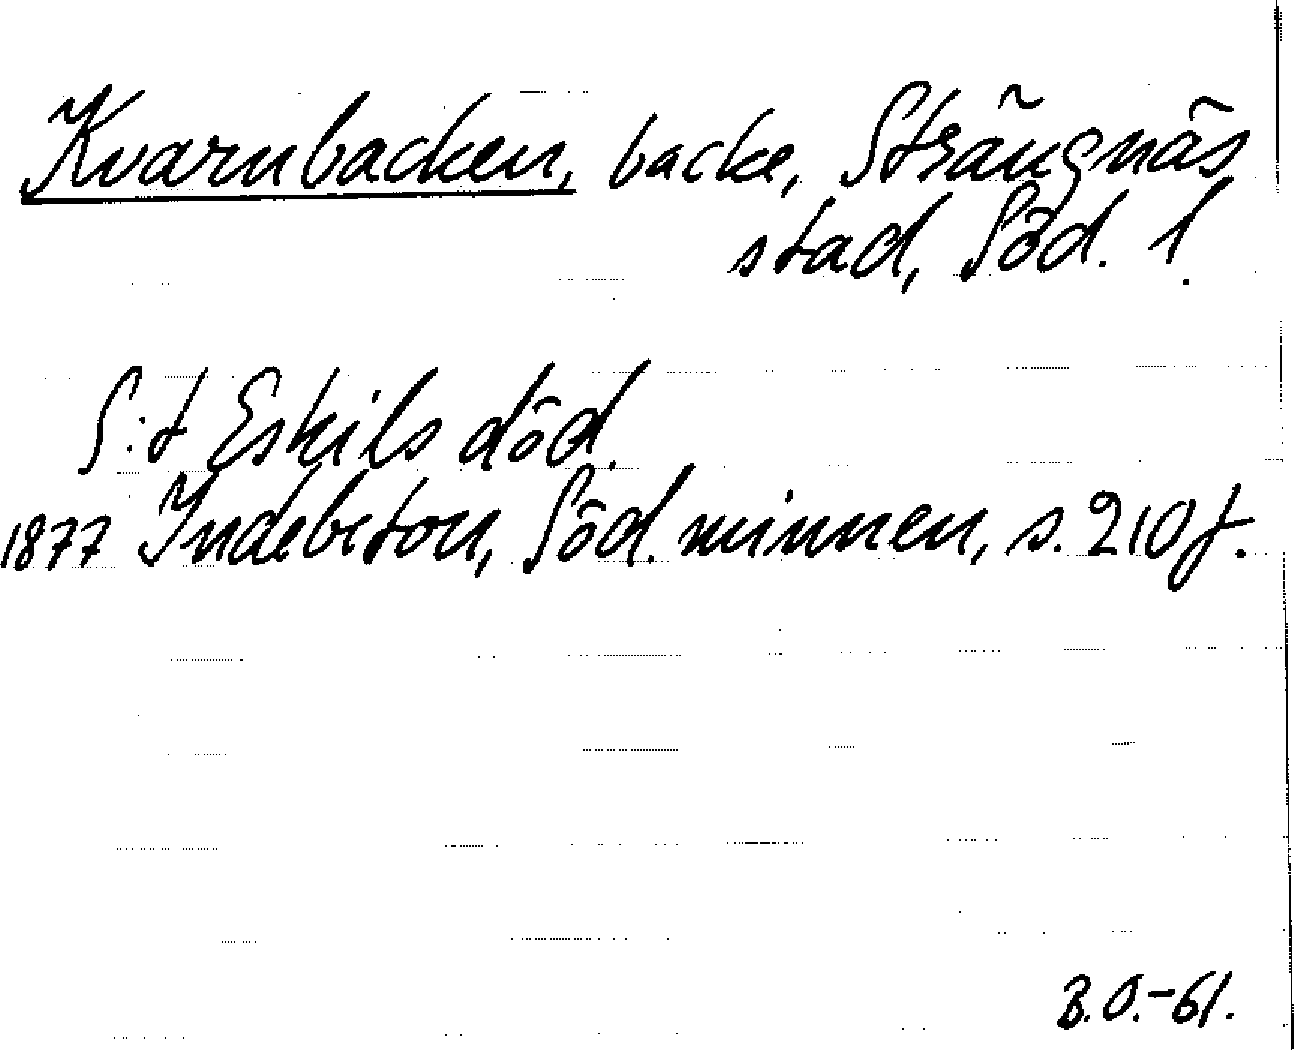 Kvarnbacken, backe, Strängnäs
stad, Söd. l.
S:t Eskils död.
1877 Indebetou, Söd. minnen, s. 210f.
B.O.-61.